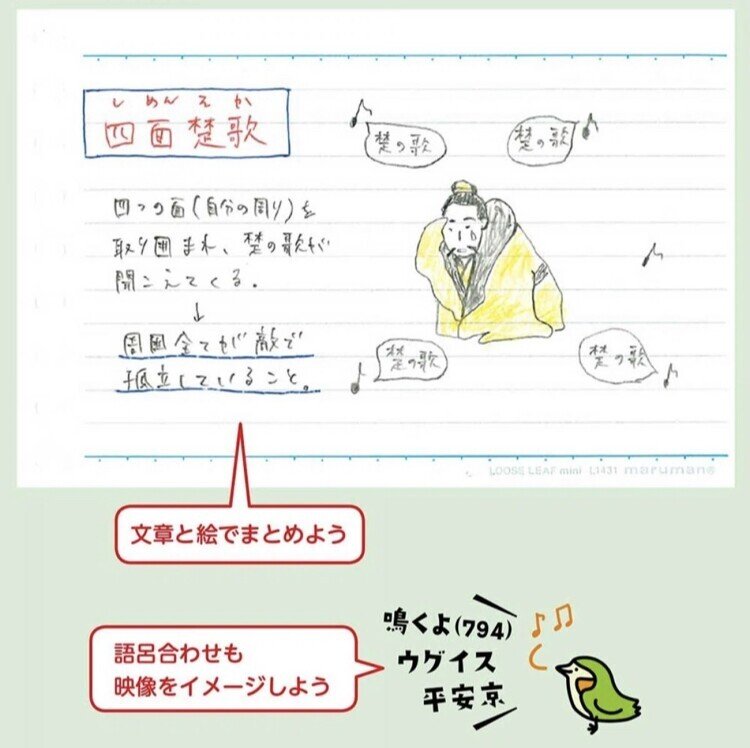 しめんそか
四面楚歌
四つの面(自分の周り)を
取り囲まれ、楚の歌が
聞こえてくる。
↓
周囲全てが敵で
孤立していること。
楚の歌
楚の歌
楚の歌
楚の歌
LOOSE LEAF mini L1431 maruman®
文章と絵でまとめよう
語呂合わせも
映像をイメージしよう
鳴くよ(794)
ウグイス
平安京